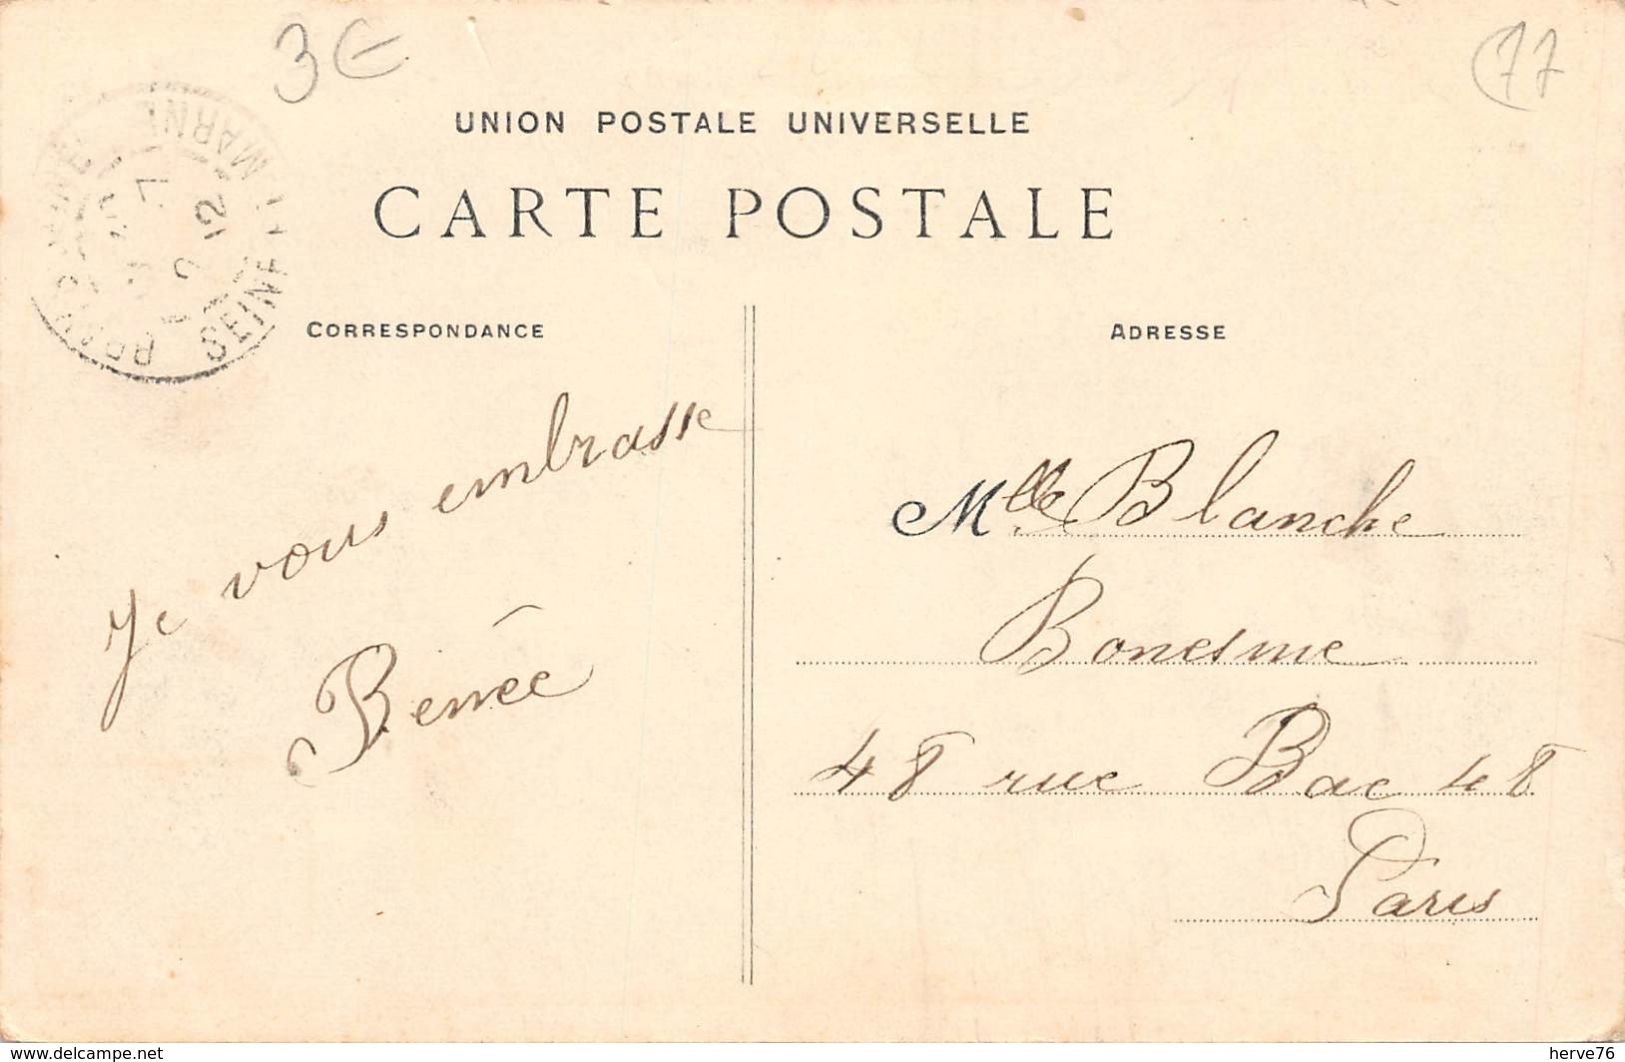 3€
(77
UNION POSTALE UNIVERSELLE
CARTE POSTALE
SEINE
MARNE
12
CORRESPONDANCE
ADRESSE
Je vous embrasse
Renée
Mlle Blanche
Bonesme
48 rue Bac 48
Paris
www.delcampe.net
herve76